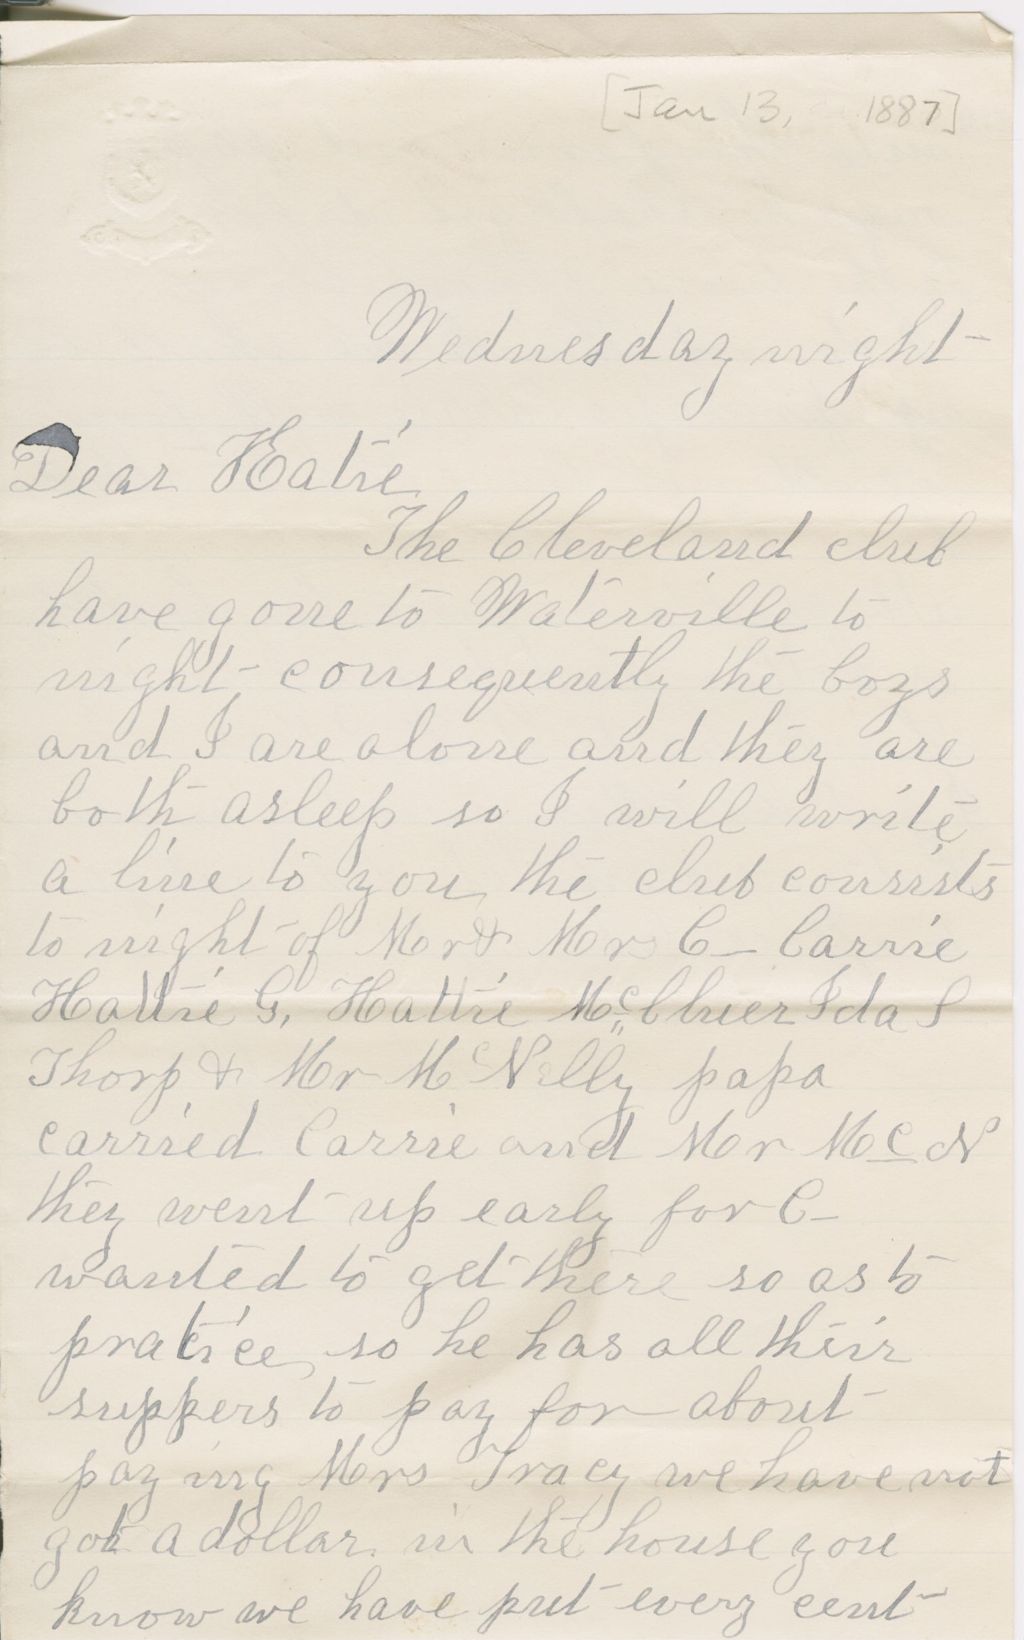 [Jan 13, 1887]
Wednesday night-
Dear Hatie
The Cleveland club
have gone to Waterville to
night consequently the boys
and I are alone and they are
both asleep so I will write
a line to you, the club consists
to night of Mr & Mrs C- Carrie
Hattie G, Hattie McCluer Ida S
Thorp & Mr McNelly papa
carried Carrie and Mr McN
they went up early for C-
wanted to get there so as to
pratice, so he has all their
suppers to pay for about
paying Mrs Tracy we have not
got a dollar in the house you
know we have put every cent